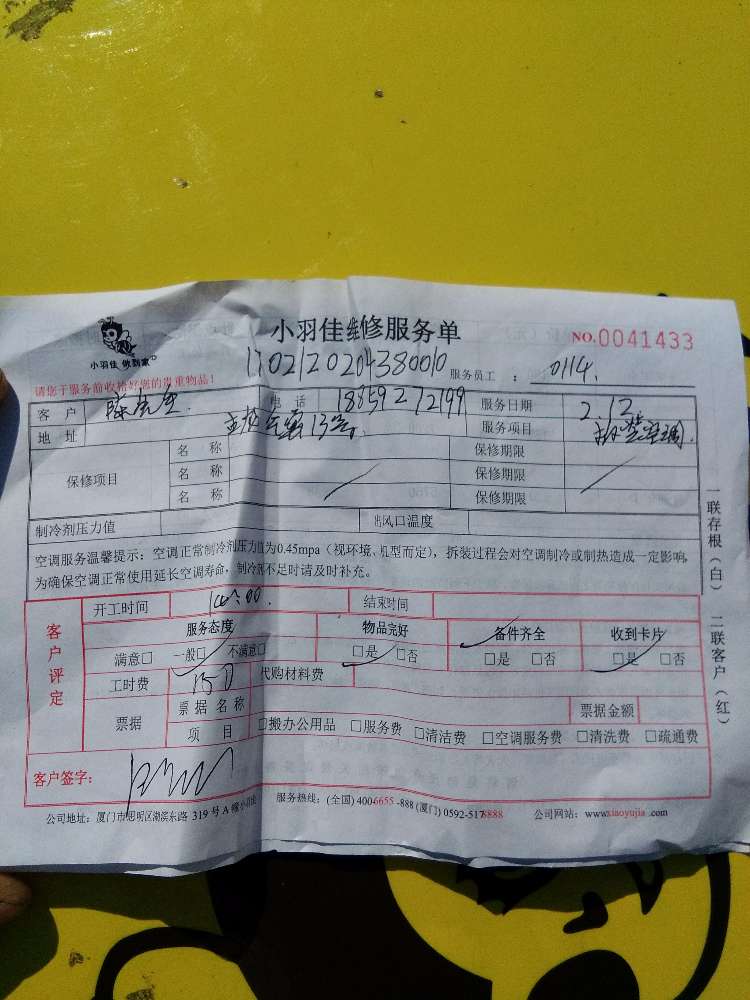 小羽佳 做到家
小羽佳维修服务单
NO.0041433
1702120204380010
服务员工 : 0114.
请您于服务前收拾好您的贵重物品!
客 户 电 话 18859272199 服务日期 2.12
地 址 13号 服务项目
保修项目 名 称 保修期限
名 称 保修期限
名 称 保修期限
制冷剂压力值 出风口温度
空调服务温馨提示:空调正常制冷剂压力值为0.45mpa(视环境、机型而定),拆装过程会对空调制冷或制热造成一定影响,
为确保空调正常使用延长空调寿命,制冷剂不足时请及时补充。
客户评定
开工时间 14:00. 结束时间
服务态度 物品完好 备件齐全 收到卡片
满意□ 一般□ 不满意□ □是 □否 □是 □否 □是 □否
工时费 150 代购材料费
票据 票据名称 票据金额
项 目 □搬办公用品 □服务费 □清洁费 □空调服务费 □清洗费 □疏通费
客户签字:
公司地址:厦门市思明区湖滨东路 319号A
服务热线:(全国) 4006655-888 (厦门) 0592-5178888
公司网站:www.xiaoyujia.com
一联存根(白) 二联客户(红)